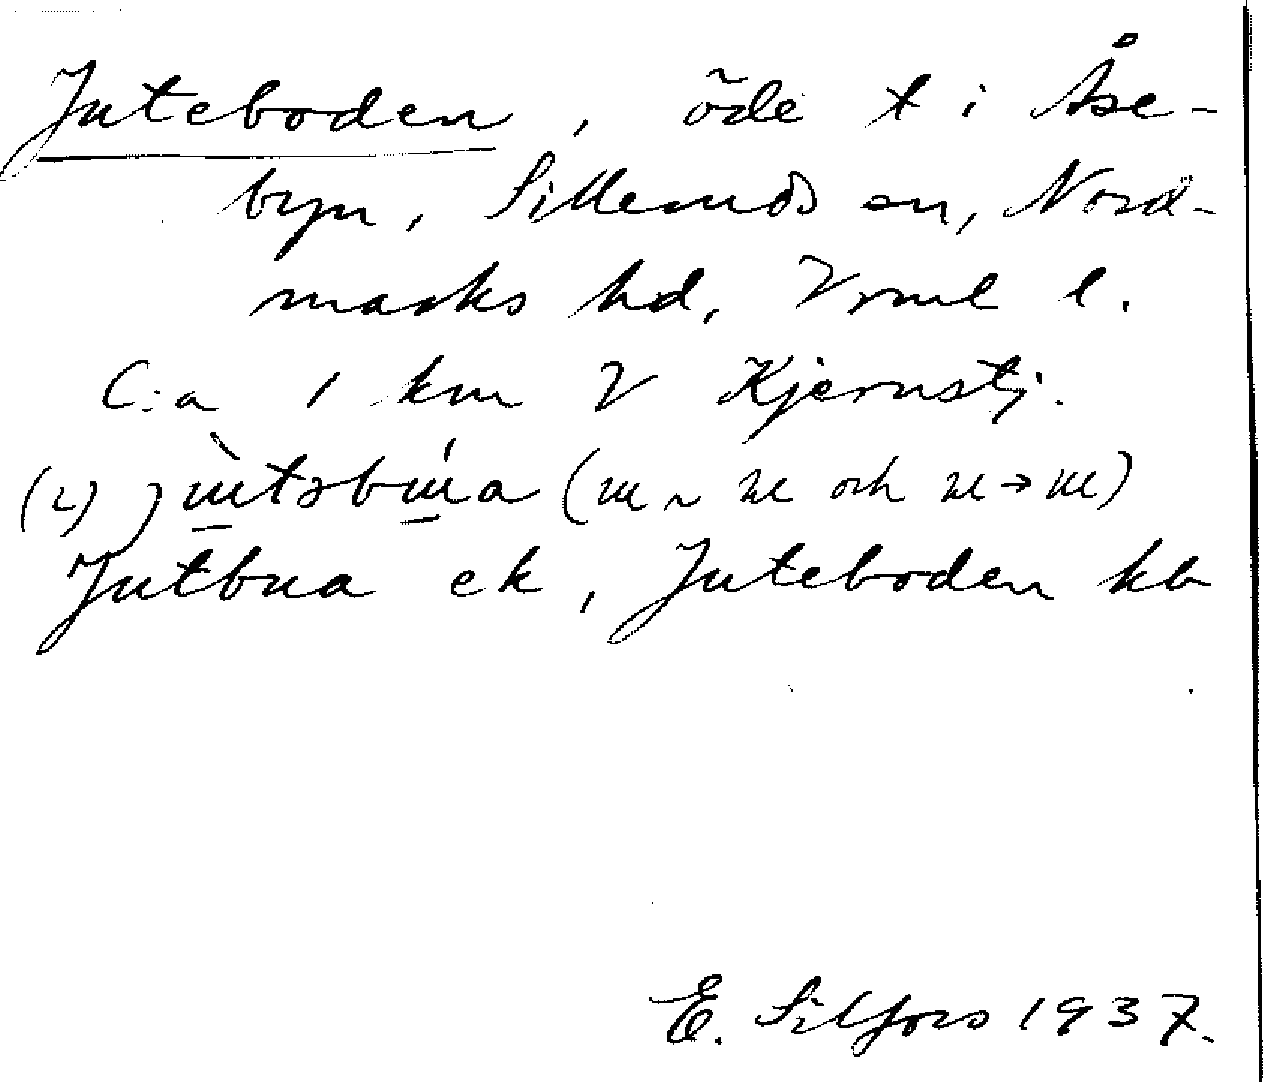 Juteboden, öde t i Åse-
byn, Silleruds sn, Nord-
marks hd, Vrml l.
C:a 1 km V Kjernstj.
(ɯ ~ ɯ och ɯ → ɯ)
Jutbua ek, Juteboden kb
E. Silfors 1937.